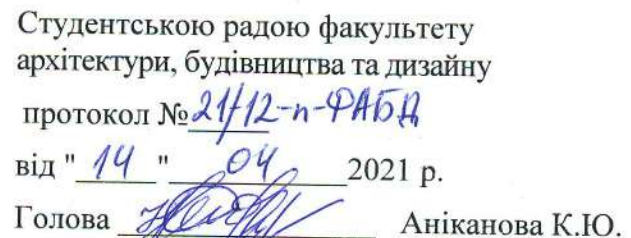 Студентською радою факультету
архітектури, будівництва та дизайну
протокол № 21/12-п-ФАБД
від " 14 " 04 2021 р.
Голова Аніканова К.Ю.